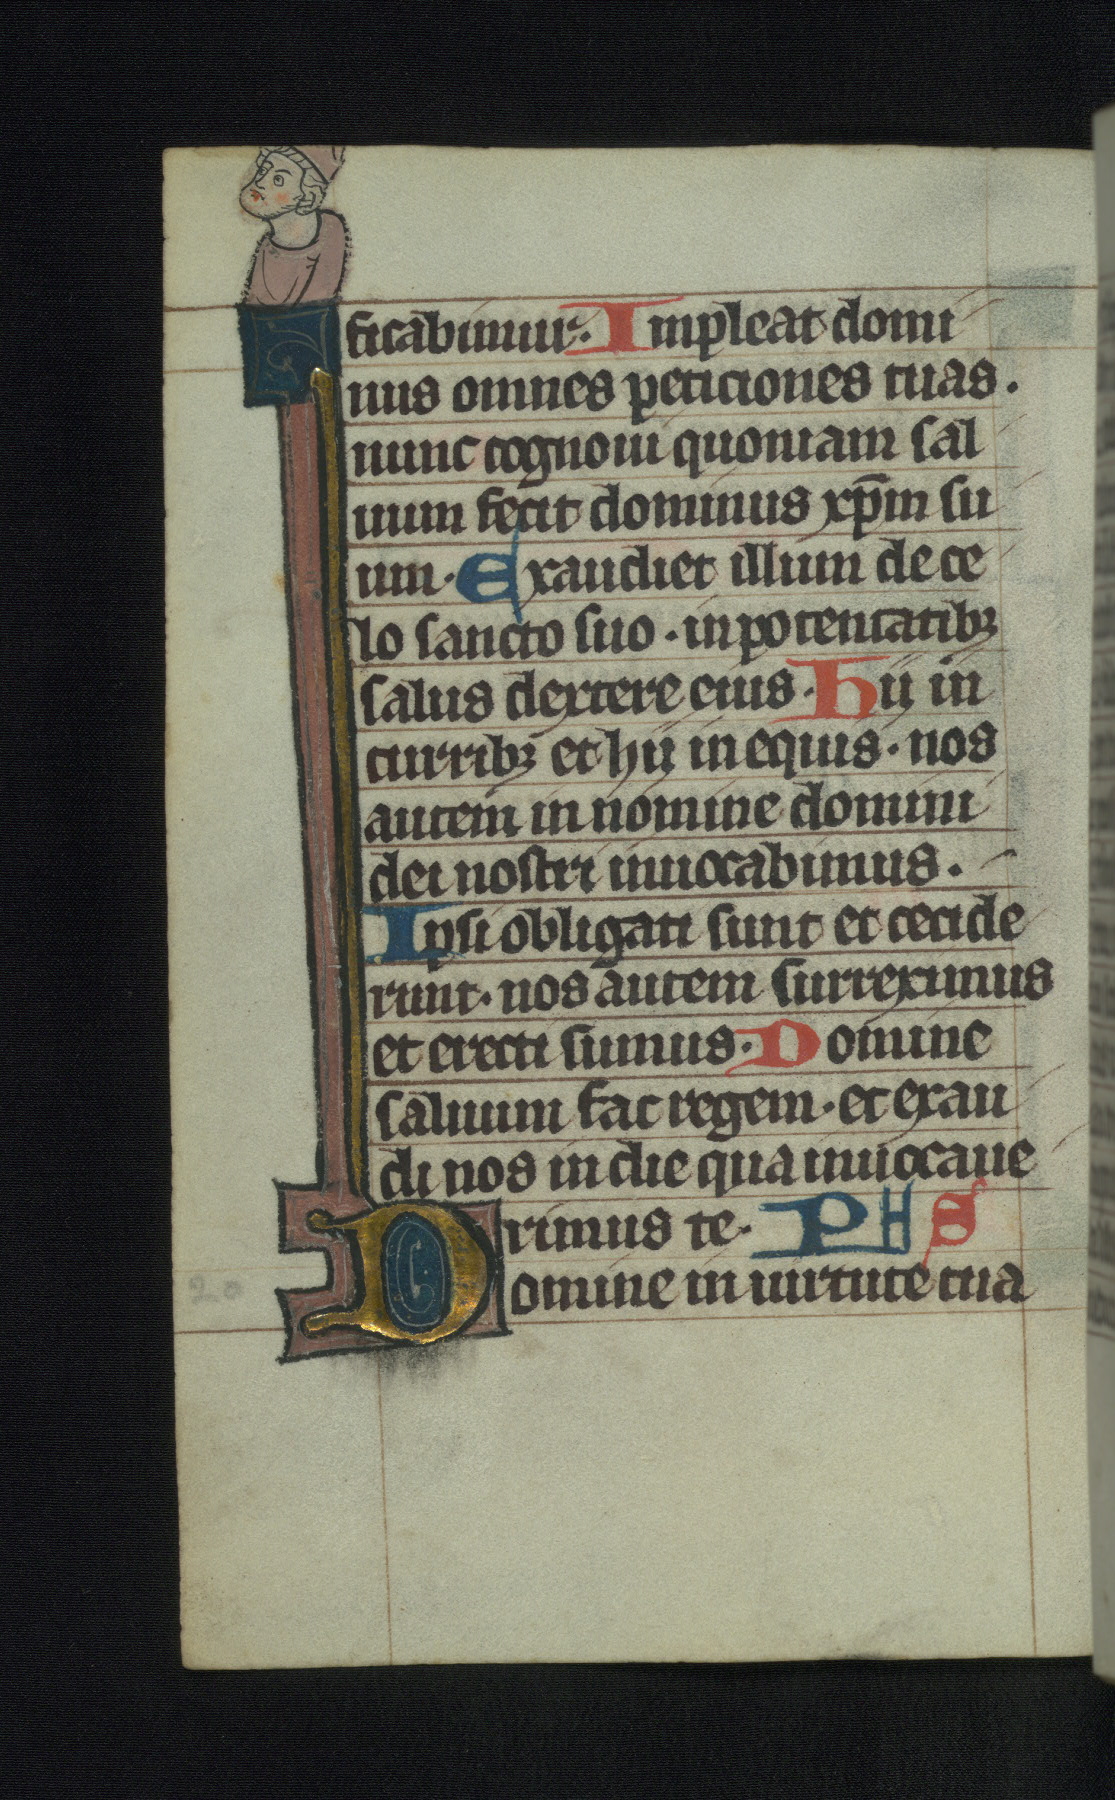 ficabimur. Impleat domi
nus omnes peticiones tuas.
nunc cognoui quoniam sal
uum fecit dominus xp̄m su
um. Exaudiet illum de ce
lo sancto suo. in potentatibꝫ
salus dextere eius. Hii in
curribꝫ et hii in equis. nos
autem in nomine domini
dei nostri inuocabimus.
Ipsi obligati sunt et cecide
runt. nos autem surreximus
et erecti sumus. Domine
saluum fac regem. et exau
di nos in die qua inuocaue
rimus te. PHS
Domine in uirtute tua
20